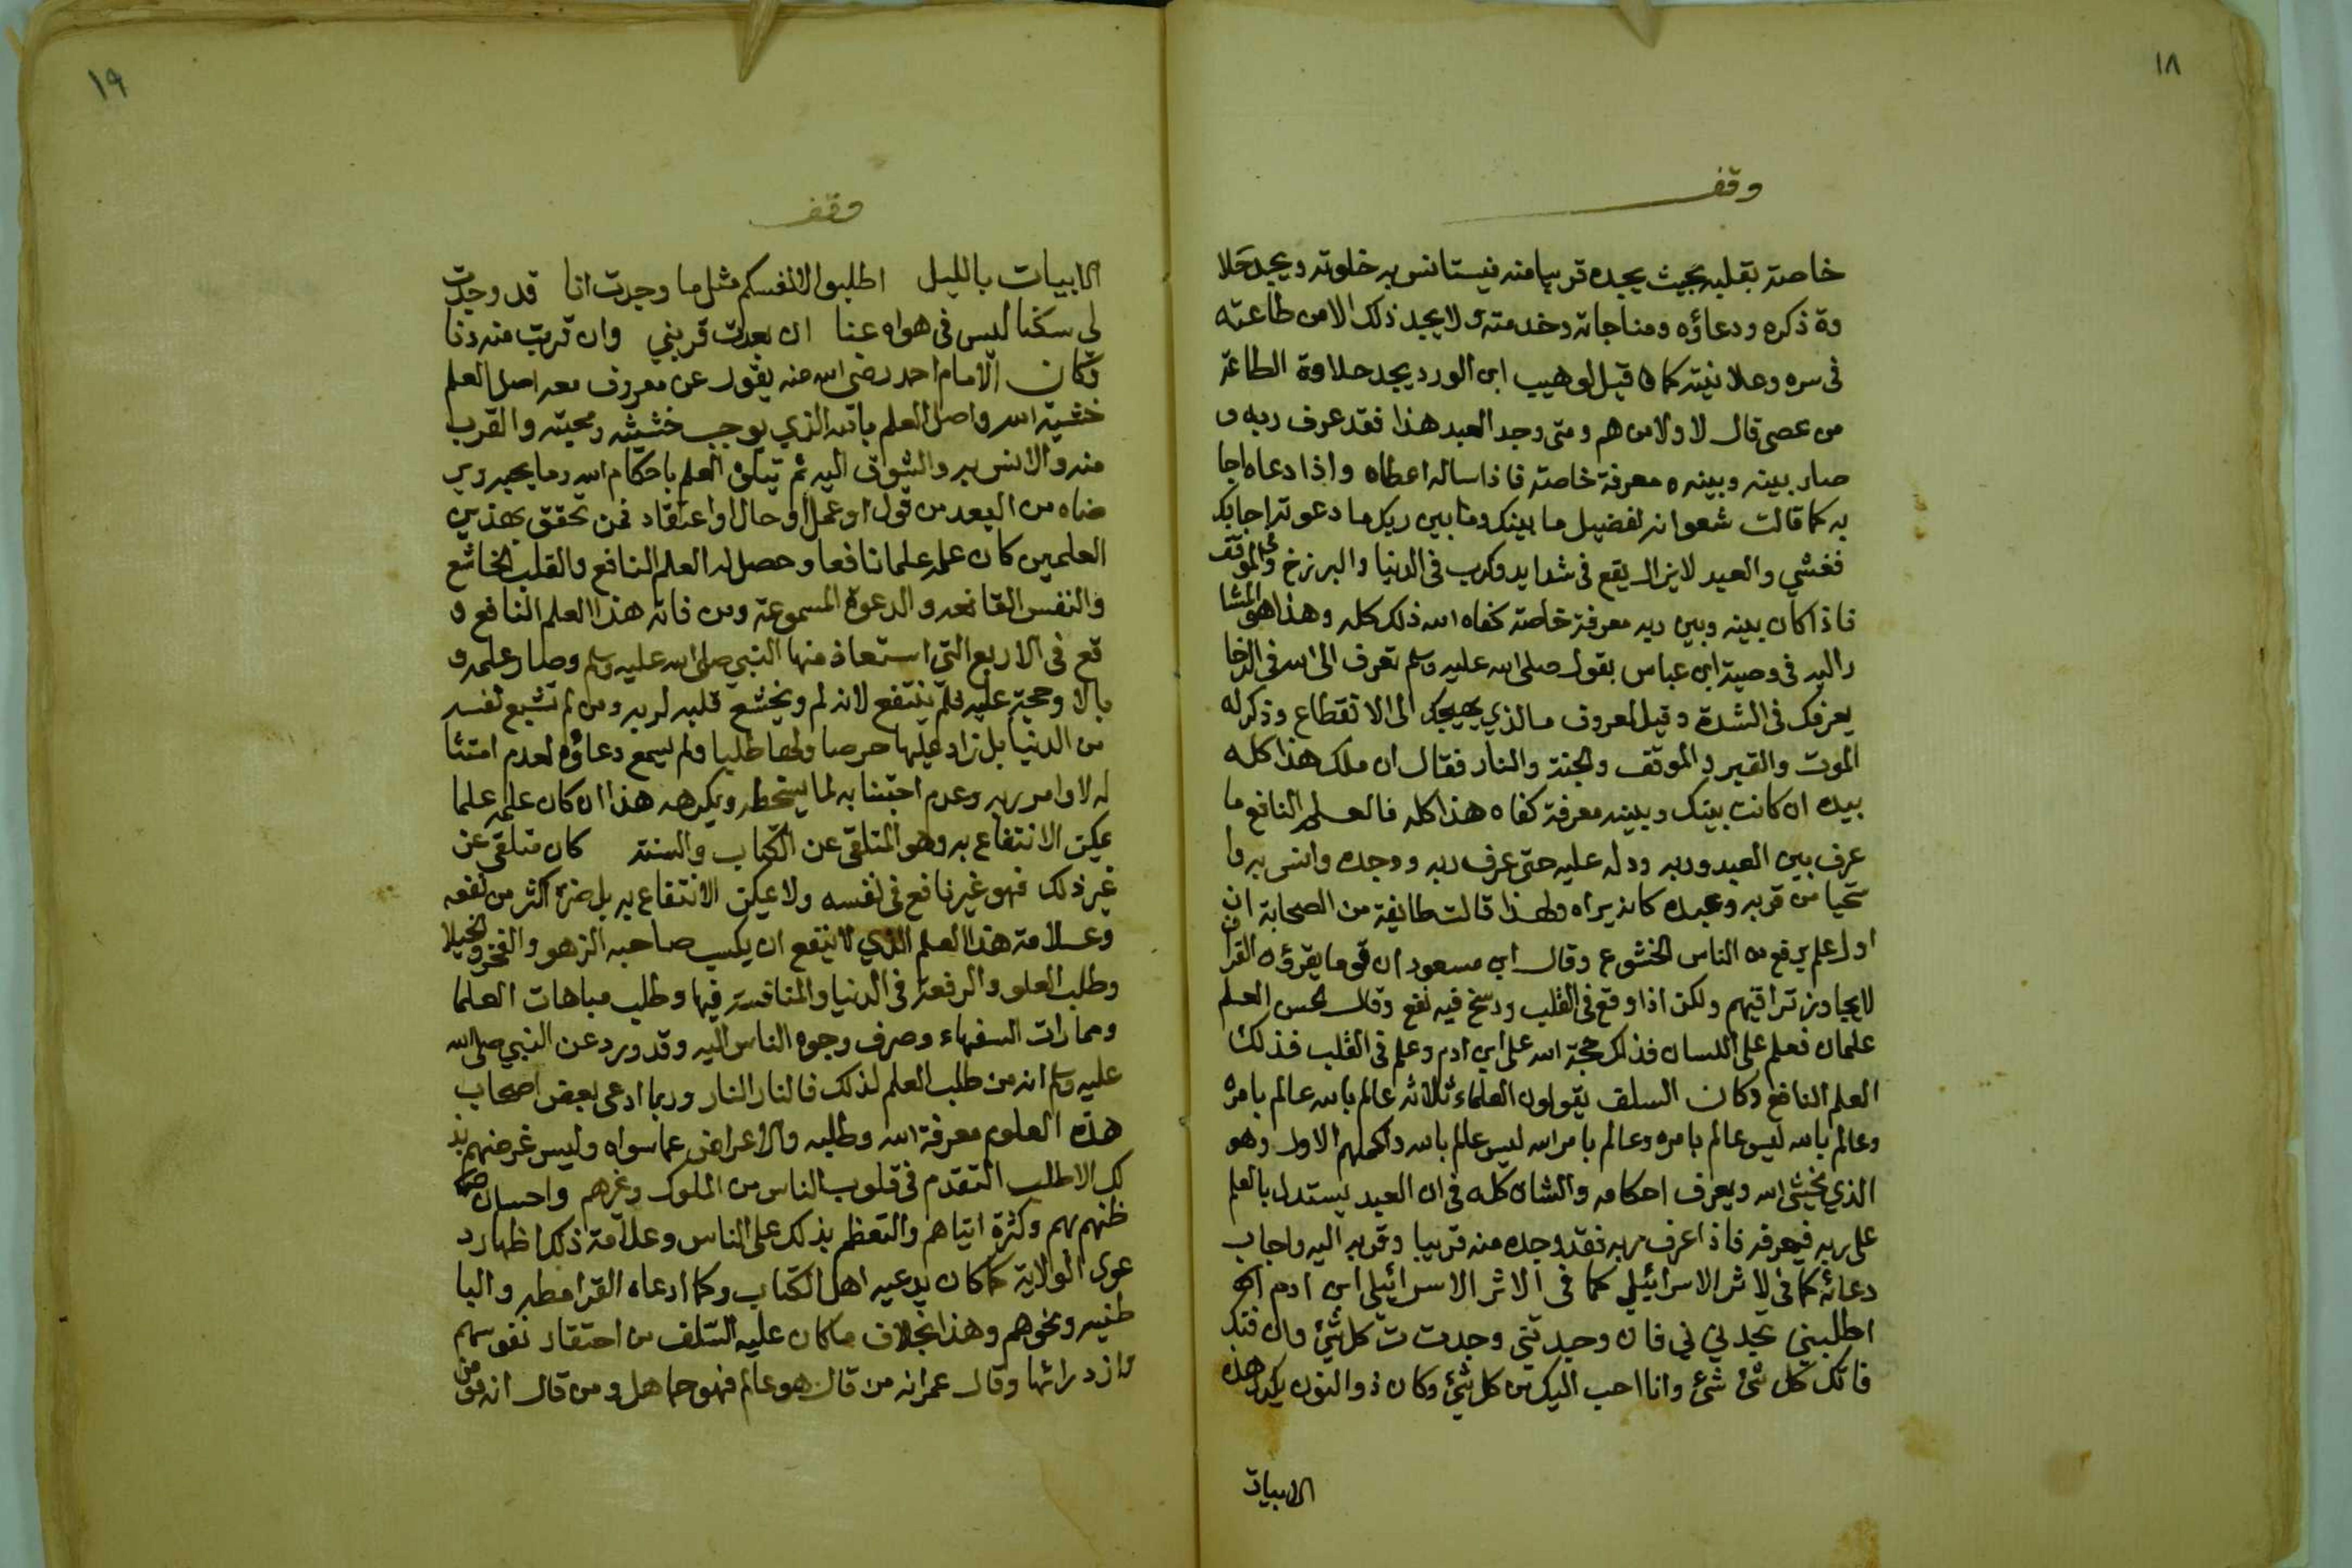 ١٨
وقف
خاصة بقلبه بحيث يجده قريبا منه فيستانس به خلوته ويجد حلا
وة ذكره ودعاؤه ومناجاته وخدمته ولا يجد ذلك الا من طاعته
فى سره وعلانيته كما قيل لوهيب ابن الورد يجد حلاوة الطاعة
من عصى قال لا ولا من هم ومتى وجد العبد هذا فقد عرف ربه و
صار بينه وبينه معرفة خاصة فاذا ساله اعطاه واذا دعاه اجا
به كما قالت شعوانه لفضيل ما بينك وما بين ربك ما دعوته اجابك
فغشي والعبد لا يزال يقع فى شدايد وكرب فى الدنيا والبرزخ والموقف
فاذا كان بينه وبين ربه معرفة خاصة كفاه الله ذلك كله وهذا هو المشا
ر اليه فى وصية ابن عباس بقوله صلى الله عليه وسلم تعرف الى الله فى الرخا
يعرفك فى الشدة وقيل لمعروف ما الذي يهيجك الى الانقطاع وذكر له
الموت والقبر والموقف والجنة والنار فقال ان ملك هذا كله
بيده ان كانت بينك وبينه معرفة كفاه هذا كله فالعلم النافع ما
عرف بين العبد وربه ودله عليه حتى عرف ربه ووجده وانس به وا
ستحيا من قربه وعبده كانه يراه ولهذا قالت طايفة من الصحابة ان
اول علم يرفع من الناس الخشوع وقال ابن مسعود ان قوما يقرؤن القرآن
لا يجاوز تراقيهم ولكن اذا وقع فى القلب ورسخ فيه نفع وقال الحسن العلم
علمان فعلم على اللسان فذلك حجة الله على ابن ادم وعلم فى القلب فذلك
العلم النافع وكان السلف يقولون العلماء ثلاثه عالم بالله عالم بامره
وعالم بالله ليس عالم بامره وعالم بامر الله ليس عالم بالله واكملهم الاول وهو
الذي يخشى الله ويعرف احكامه والشان كله فى ان العبد يستدل بالعلم
على ربه فيعرفه فاذا عرف ربه فقد وجده منه قريبا وقربه اليه واجاب
دعائه كما فى لاثر الاسرائيلي كما فى الاثر الاسرائيلي ابن ادم
اطلبني تجدني ني فان وجدتني وجدت ت كل شئ وان فتك
فاتك كل شئ شئ وانا احب اليك من كل شئ وكان ذو النون يكرر هذه
الابيات
١٩
وقف
الابيات بالليل اطلبوا لانفسكم مثل ما وجدت انا قد وجدت
لى سكنا ليس فى هواه عنا ان بعدت قربني وان قربت منه دنا
وكان الامام احمد رضى الله عنه يقول عن معروف معه اصل العلم
خشية الله واصل العلم بالله الذي يوجب خشيته ومحبته والقرب
منه والانس به والشوق اليه ثم يتلوه العلم باحكام الله وما يحبه وير
ضاه من العبد من قول او عمل او حال او اعتقاد فمن تحقق بهذين
العلمين كان علمه علما نافعا وحصل له العلم النافع والقلب الخاشع
والنفس القانعه والدعوة المسموعة ومن فاته هذا العلم النافع و
قع فى الاربع التي استعاذ منها النبي صلى الله عليه وسلم وصار علمه و
بالا وحجة عليه فلم ينتفع لانه لم ويخشع قلبه لربه ومن لم تشبع نفسه
من الدنيا بل زاد عليها حرصا ولها طلبا ولم يسمع دعاؤه لعدم امتثا
له لاوامر ربه وعدم اجتنابه لما يسخطه ويكرهه هذا ان كان علمه علما
يمكن الانتفاع به وهو المتلقى عن الكتاب والسنة كان متلقى عن
غير ذلك فهو غير نافع فى نفسه ولا يمكن الانتفاع به بل ضره اكثر من نفعه
وعلامة هذا العلم الذي لا ينفع ان يكسب صاحبه الزهو والفخر والخيلا
وطلب العلو والرفعة فى الدنيا والمنافسة فيها وطلب مباهات العلما
ومما رات السفهاء وصرف وجوه الناس اليه وقد ورد عن النبي صلى الله
عليه وسلم انه من طلب العلم لذلك فالنار النار وربما ادعى بعض اصحاب
هذه العلوم معرفة الله وطلبه والاعراض عما سواه وليس غرضهم بذ
لك الا طلب التقدم فى قلوب الناس من الملوك وغيرهم واحسان
ظنهم بهم وكثرة اتباهم والتعظم بذلك على الناس وعلامة ذلك اظهار د
عوى الولاية كما كان يدعيه اهل الكتاب وكما ادعاه القرامطه والبا
طنيه ونحوهم وهذا بخلاف ما كان عليه السلف من احتقار نفوسهم
وازدرائها وقال عمر انه من قال هو عالم فهو جاهل ومن قال انه مومن